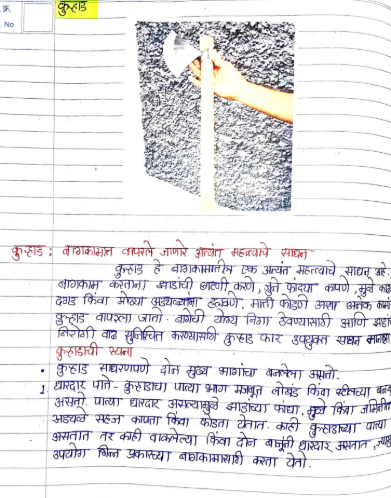 क्र.
No.
कुऱ्हाड
कुऱ्हाड : बागकामात वापरले जाणारे अत्यंत महत्त्वाचे साधन
कुऱ्हाड हे बागकामातील एक अत्यंत महत्त्वाचे साधन आहे.
बागकाम करताना झाडांची छाटणी करणे, जुने फांद्या कापणे, मुळे काढ
दगड किंवा मोठ्या अडथळ्यांना हटवणे, माती फोडणे अशा अनेक कामां
कुऱ्हाड वापरला जातो. बागेची योग्य निगा ठेवण्यासाठी आणि झाडां
निरोगी वाढ सुनिश्चित करण्यासाठी कुऱ्हाड फार उपयुक्त साधन मानला
कुऱ्हाडाची रचना
• कुऱ्हाड साधारणपणे दोन मुख्य भागांचा बनलेला असतो.
1. धारदार पाते - कुऱ्हाडाचा पात्या भाग मजबूत लोखंड किंवा स्टीलच्या बनव
असतो. पात्या धारदार असल्यामुळे झाडाच्या फांद्या, मुळे किंवा जमिनीत
अडथळे सहज कापता किंवा फोडता येतात. काही कुऱ्हाडाच्या पात्या
असतात तर काही वाकलेल्या किंवा दोन बाजूंनी धारदार असतात, ज्या
उपयोग भिन्न प्रकारच्या बागकामासाठी करता येतो.